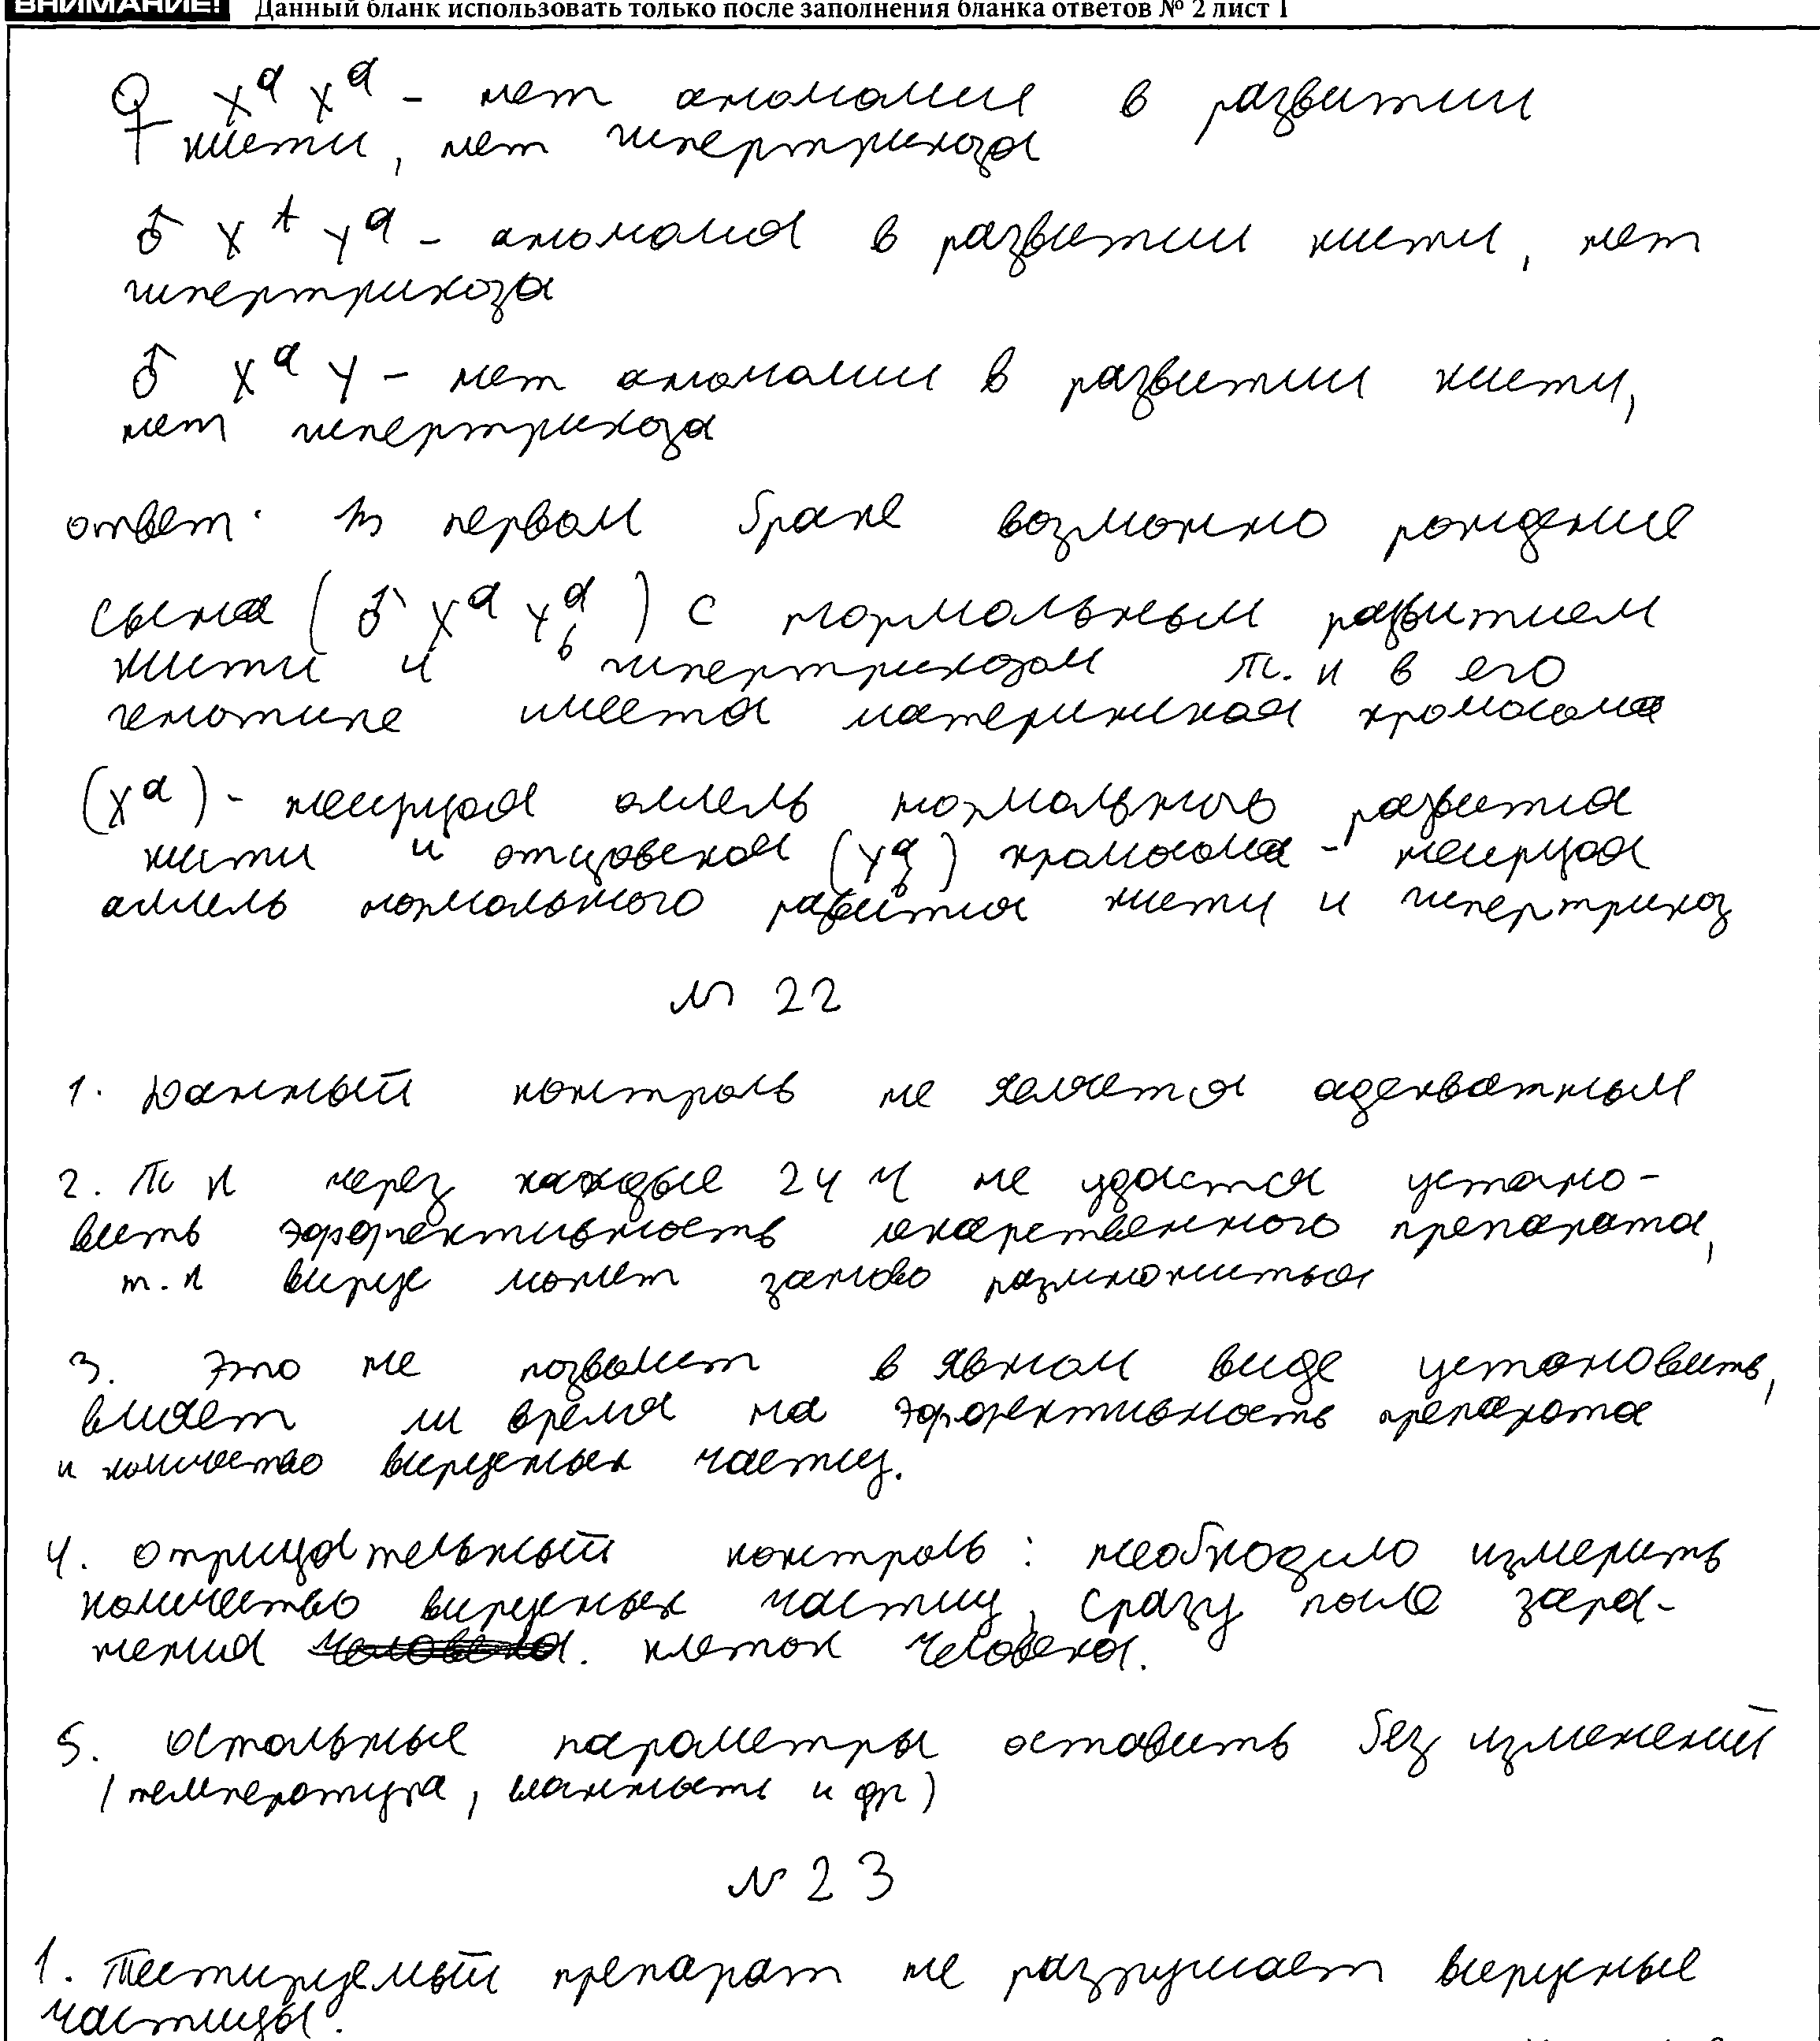 ВНИМАНИЕ! Данный бланк использовать только после заполнения бланка ответов № 2 лист 1
♀ Xᵃ Xᵃ - нет аномалия в развитии
кисти, нет гипертрихоза
♂ Xᴬ Yᵃ - аномалия в развитии кисти, нет
гипертрихоза
♂ Xᵃ Y - нет аномалии в развитии кисти,
нет гипертрихоза
ответ: в первом браке возможно рождение
сына (♂ Xᵃ Yᵃb) с нормальным развитием
кисти и гипертрихозом т. к в его
генотипе имеется материнская хромосома
(Xᵃ) - несущая аллель нормального развития
кисти и отцовская (Yᵃb) хромосома - несущая
аллель нормального развития кисти и гипертрихоз
№ 22
1. Данный контроль не является адекватным
2. Т к через каждые 24 ч не удастся устано-
вить эффективность лекарственного препарата,
т. к вирус может заново размножиться
3. Это не позволит в явном виде установить,
влияет ли время на эффективность препарата
и количество вирусных частиц.
4. отрицательный контроль: необходимо измерить
количество вирусных частиц, сразу после зара-
жения человека. клеток человека.
5. Остальные параметры оставить без изменений
(температура, влажность и др)
№ 23
1. Тестируемый препарат не разрушает вирусные
частицы.